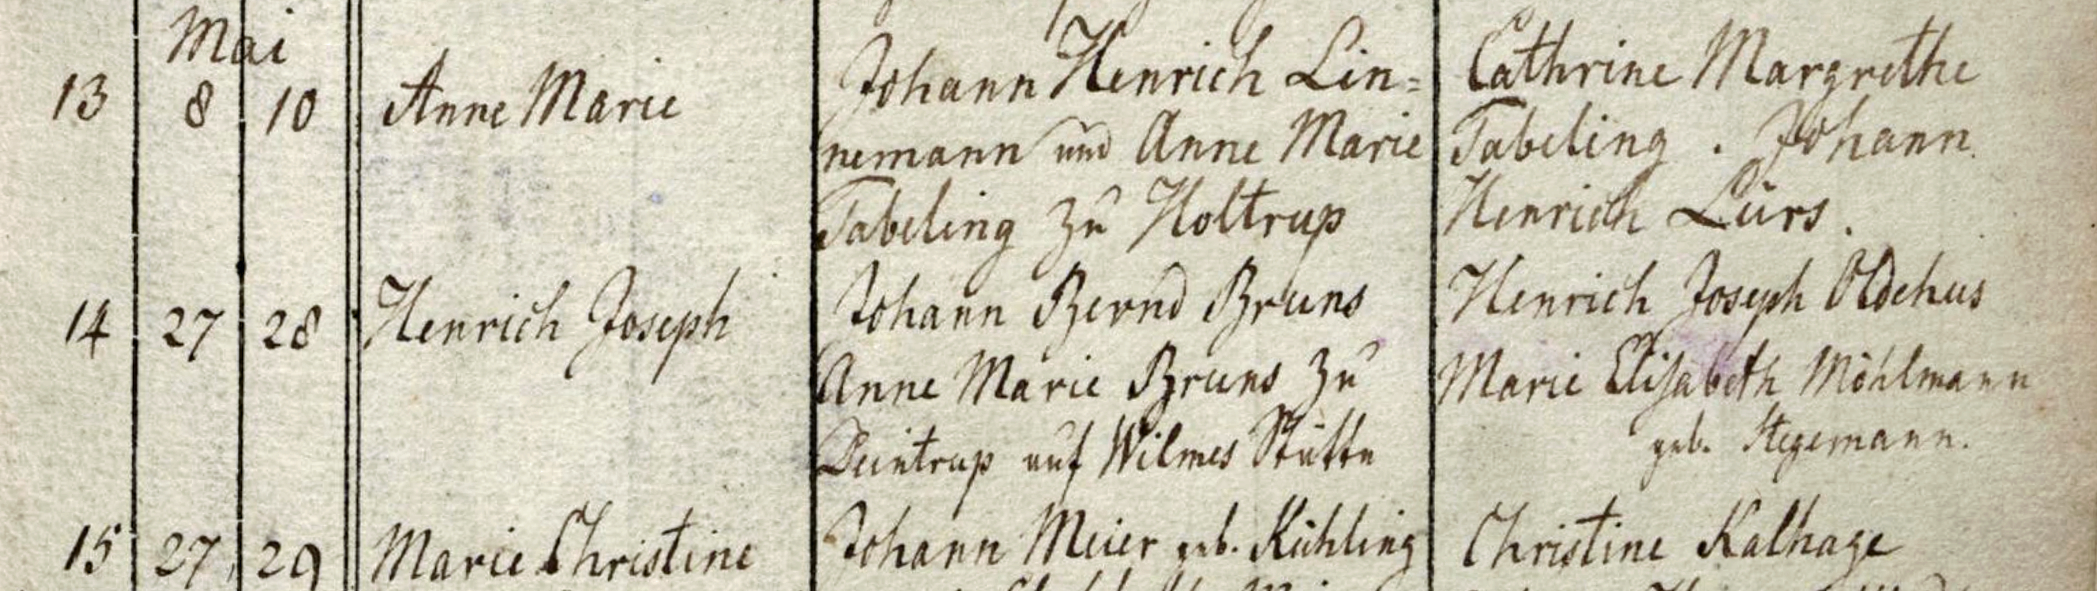 Mai
13 8 10 Anne Marie Johann Henrich Lin= Cathrine Margrethe
nemann und Anne Marie Tabeling . Johann
Tabeling zu Holtrup Henrich Lürs .
14 27 28 Henrich Joseph Johann Bernd Bruns Henrich Joseph Oldehus
Anne Marie Bruns zu Marie Elisabeth Möhlmann
Deintrup auf Wilmes Stätte geb. Stegemann.
15 27 29 Marie Christine Johann Meier geb. Kühling Christine Kalhage